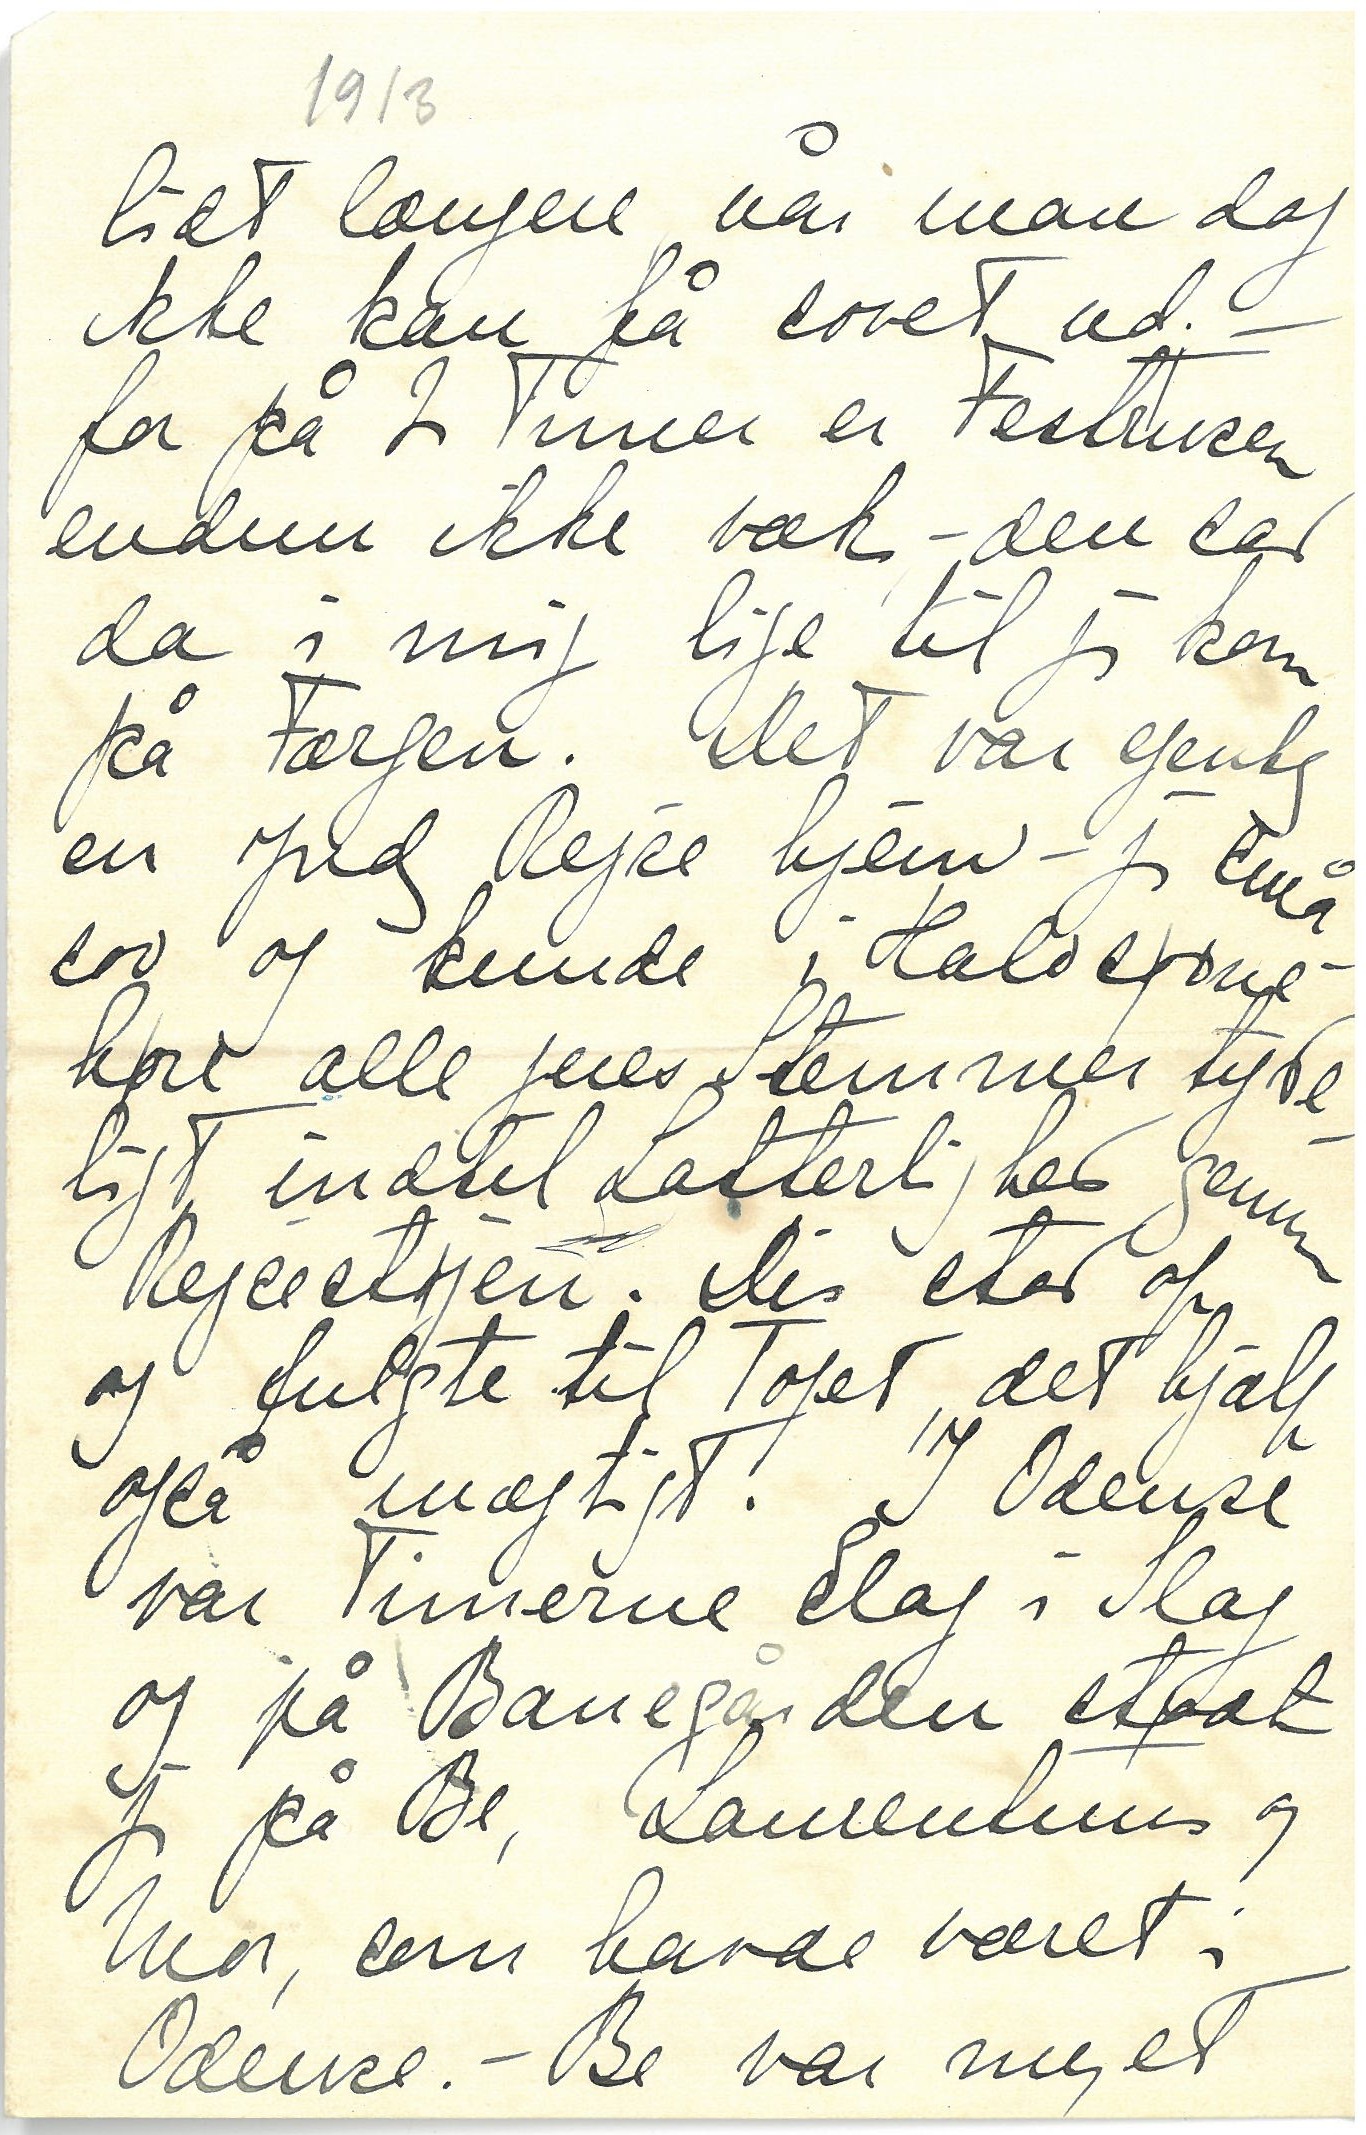 1913
lidt længere når man dog
ikke kan få sovet ud. –
for på 2 Timer er Festrusen
endnu ikke væk – den sad
da i mig lige til jeg kom
på Færgen. Det var egentlig
en yndig Rejse hjem – jeg små
sov og kunde i Halvsøvne
høre alle jeres Stemmer tyde-
ligt indtil Latterlighed gennem
Rejsestøjen. Dis stod op
og fulgte til Toget, det hjalp
også mægtigt. I Odense
var Timerne Slag i Slag
og på Banegården stødt
jeg på Be, Laurentius og
Mor, som havde været i
Odense. – Be var meget